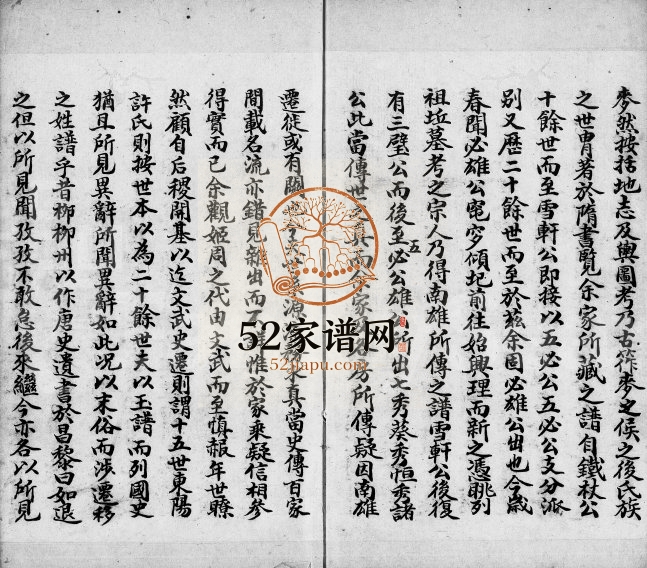 麥然按括地志及輿圖考乃古祚麥之侯之後氏族
之世胄著於隋書覽余家所藏之譜自鐵杖公
十餘世而至雪軒公即接以五必公五必公支分派
別又歷二十餘世而至於茲余固必雄公出也今歲
春聞必雄公窀穸傾圮前往始興理而新之憑眺列
祖坵墓考之宗人乃得南雄所傳之譜雪軒公後復
有三璧公而後至五必公雄公所出七秀葵秀恒秀諸
公此當傳世之真而余家各分所傳疑因南雄
遷徙或有闕
源
家乘真當史傳百家
間載名流亦錯見新出而
惟於家乘疑信相參
得實而已余觀姬周之代由文武而至慎赧年世瞭
然顧自后稷開基以迄文武史遷則謂十五世東陽
許氏則按世本以為二十餘世夫以玉譜而列國史
猶且所見異辭所聞異辭如此況以末俗而涉遷移
之姓譜乎昔柳柳州以作唐史遺書於昌黎曰如退
之但以所見聞孜孜不敢怠後來繼今亦各以所見
52家谱网
52jiapu.com